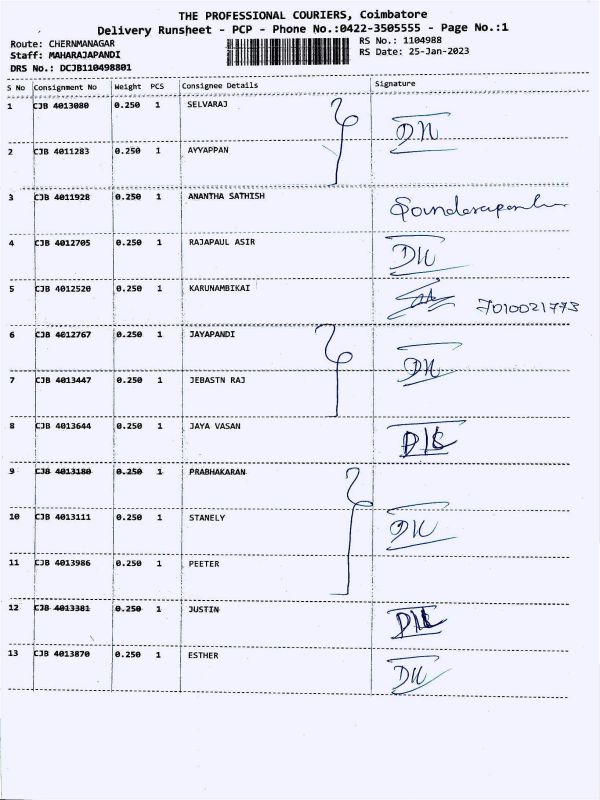 THE PROFESSIONAL COURIERS, Coimbatore
Delivery Runsheet - PCP - Phone No.:0422-3505555 - Page No.:1
Route: CHERNMANAGAR
Staff: MAHARAJAPANDI
DRS No.: DCJB110498801
RS No.: 1104988
RS Date: 25-Jan-2023
S No Consignment No Weight PCS Consignee Details Signature
1 CJB 4013080 0.250 1 SELVARAJ
2 CJB 4011283 0.250 1 AYYAPPAN
3 CJB 4011928 0.250 1 ANANTHA SATHISH
4 CJB 4012705 0.250 1 RAJAPAUL ASIR
5 CJB 4012520 0.250 1 KARUNAMBIKAI 7010021773
6 CJB 4012767 0.250 1 JAYAPANDI
7 CJB 4013447 0.250 1 JEBASTN RAJ
8 CJB 4013644 0.250 1 JAYA VASAN
9 CJB 4013180 0.250 1 PRABHAKARAN
10 CJB 4013111 0.250 1 STANELY
11 CJB 4013986 0.250 1 PEETER
12 CJB 4013381 0.250 1 JUSTIN
13 CJB 4013870 0.250 1 ESTHER